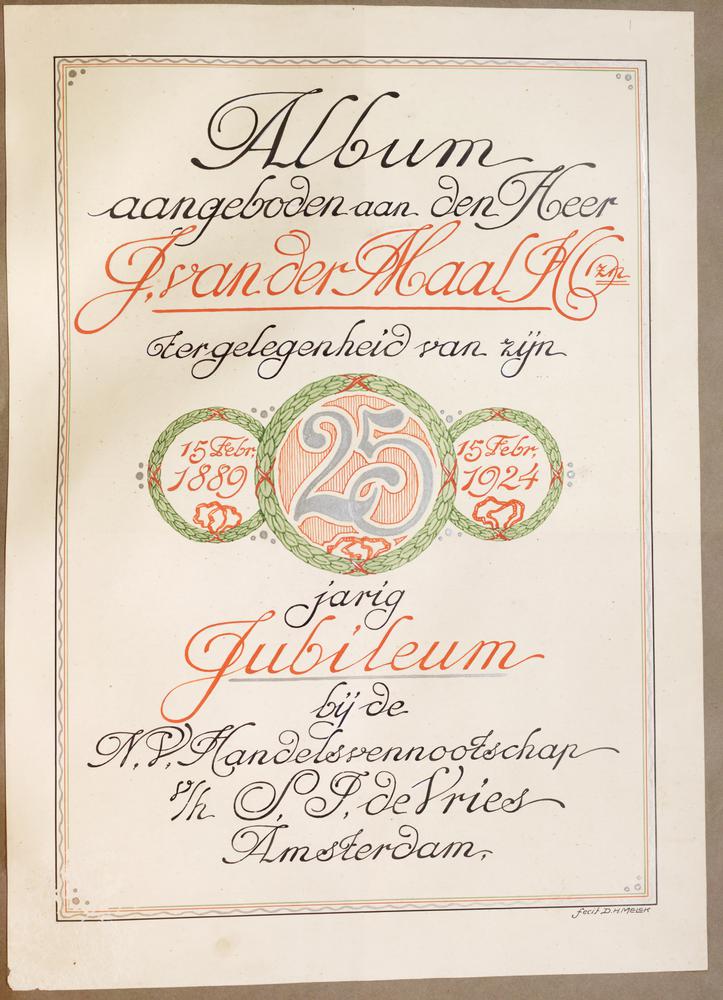 Album
aangeboden aan den Heer
J. van der Maal HCzn
ter gelegenheid van zijn
15 Febr.
1889
25
15 Febr.
1924
jarig
Jubileum
bij de
N.V. Handelsvennootschap
v/h S. I. de Vries
Amsterdam.
fecit D. H. MELEK